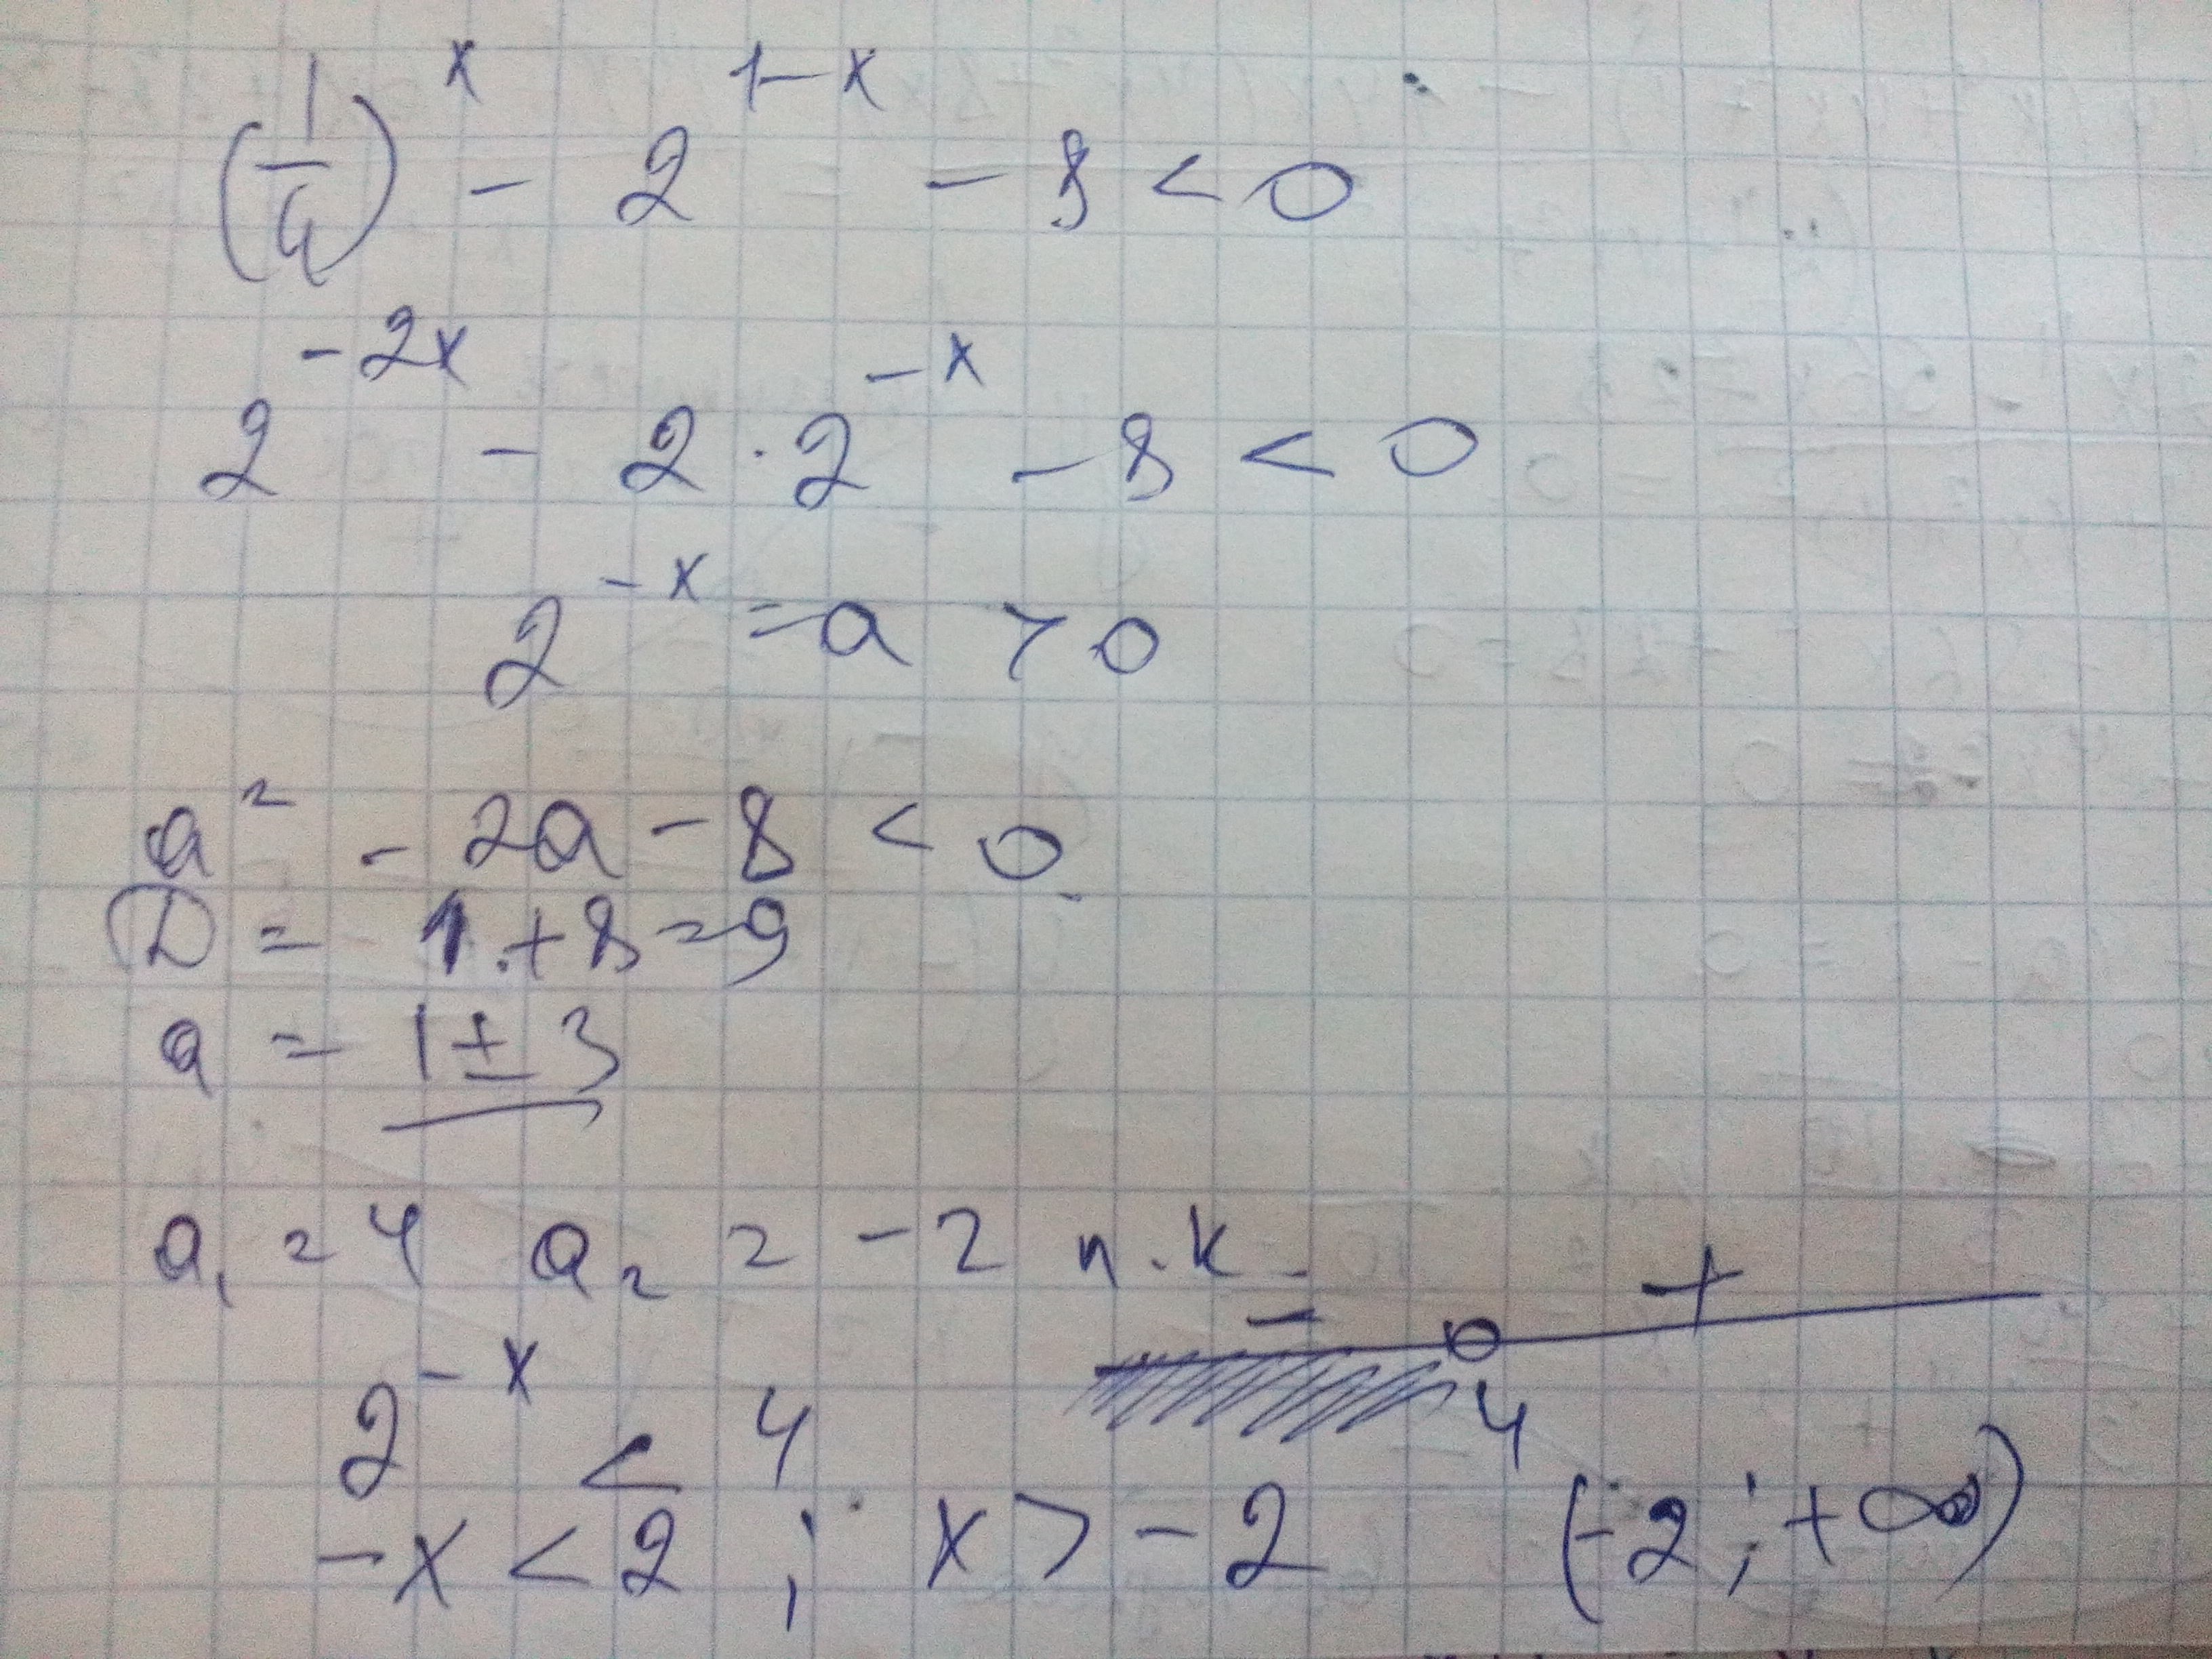 (1/4)^x - 2^(1-x) - 8 < 0
2^(-2x) - 2 · 2^(-x) - 8 < 0
2^(-x) = a > 0
a² - 2a - 8 < 0
D = 1 + 8 = 9
a = 1 ± 3
a₁ = 4 a₂ = -2 п.к.
- +
4
2^(-x) < 4
-x < 2 ; x > -2 (-2; +∞)